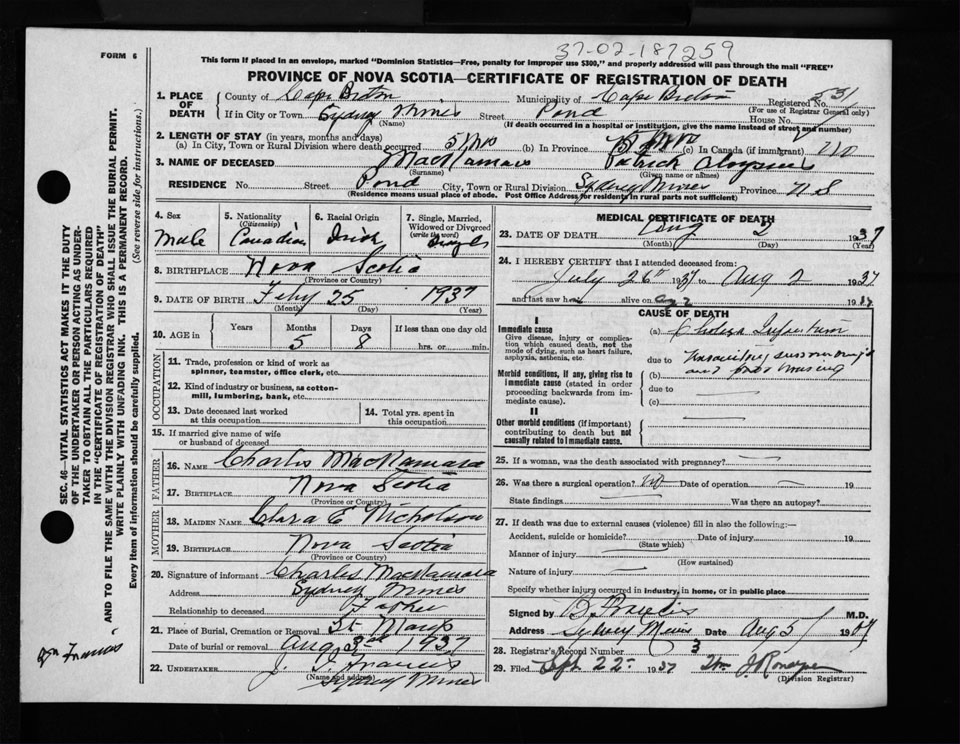 37-02-187259
FORM 6
This form if placed in an envelope, marked "Dominion Statistics—Free, penalty for improper use $300," and properly addressed will pass through the mail "FREE"
PROVINCE OF NOVA SCOTIA—CERTIFICATE OF REGISTRATION OF DEATH
1. PLACE OF DEATH
County of Cape Breton Municipality of Cape Breton Registered No. 531
(For use of Registrar General only)
If in City or Town Sydney Mines Street Pond House No.
(Name) (If death occurred in a hospital or institution, give the name instead of street and number)
2. LENGTH OF STAY (in years, months and days)
(a) In City, Town or Rural Division where death occurred 5 mos (b) In Province (c) In Canada (if immigrant)
3. NAME OF DECEASED MacNamara Patrick
(Surname) (Given name or names)
RESIDENCE No. Street Pond City, Town or Rural Division Sydney Mines Province N S
(Residence means usual place of abode. Post Office Address for residents in rural parts not sufficient)
4. Sex
Male
5. Nationality (Citizenship)
Canadian
6. Racial Origin
Irish
7. Single, Married, Widowed or Divorced (write the word)
Single
8. BIRTHPLACE Nova Scotia
(Province or Country)
9. DATE OF BIRTH Feby 25 1937
(Month) (Day) (Year)
10. AGE in
Years Months Days If less than one day old
5 8 hrs. or min.
OCCUPATION
11. Trade, profession or kind of work as
spinner, teamster, office clerk, etc.
12. Kind of industry or business, as cotton-
mill, lumbering, bank, etc.
13. Date deceased last worked
at this occupation
14. Total yrs. spent in
this occupation
15. If married give name of wife
or husband of deceased
FATHER
16. NAME Charles MacNamara
17. BIRTHPLACE Nova Scotia
(Province or Country)
MOTHER
18. MAIDEN NAME Clara E Nicholson
19. BIRTHPLACE Nova Scotia
(Province or Country)
20. Signature of informant Charles MacNamara
Address Sydney Mines
Relationship to deceased Father
21. Place of Burial, Cremation or Removal St Marys
Date of burial or removal Aug 3rd 1937
22. UNDERTAKER J. J. Francis
(Name and address) Sydney Mines
MEDICAL CERTIFICATE OF DEATH
23. DATE OF DEATH Aug 2 1937
(Month) (Day) (Year)
24. I HEREBY CERTIFY that I attended deceased from:
July 26th 1937 to Aug 2 1937
and last saw h alive on Aug 2 1937
CAUSE OF DEATH
I
Immediate cause
Give disease, injury or complica-
tion which caused death, not the
mode of dying, such as heart failure,
asphyxia, asthenia, etc.
(a) Cholera Infantum
due to
Morbid conditions, if any, giving rise to
immediate cause (stated in order
proceeding backwards from im-
mediate cause).
(b) and poor nursing
due to
(c)
II
Other morbid conditions (if important)
contributing to death but not
causally related to immediate cause.
25. If a woman, was the death associated with pregnancy?
26. Was there a surgical operation? no Date of operation 19
State findings Was there an autopsy?
27. If death was due to external causes (violence) fill in also the following:—
Accident, suicide or homicide? Date of injury 19
(State which)
Manner of injury
(How sustained)
Nature of injury
Specify whether injury occurred in industry, in home, or in public place
Signed by M.D.
Address Sydney Mines Date Aug 5/ 1937
28. Registrar's Record Number 3
29. Filed Sept 22 1937
(Division Registrar)
SEC. 46—VITAL STATISTICS ACT MAKES IT THE DUTY
OF THE UNDERTAKER OR PERSON ACTING AS UNDER-
TAKER TO OBTAIN ALL THE PARTICULARS REQUIRED
IN THE "CERTIFICATE OF REGISTRATION OF DEATH"
AND TO FILE THE SAME WITH THE DIVISION REGISTRAR WHO SHALL ISSUE THE BURIAL PERMIT.
WRITE PLAINLY WITH UNFADING INK. THIS IS A PERMANENT RECORD.
Every item of information should be carefully supplied. (See reverse side for instructions.)
Francis